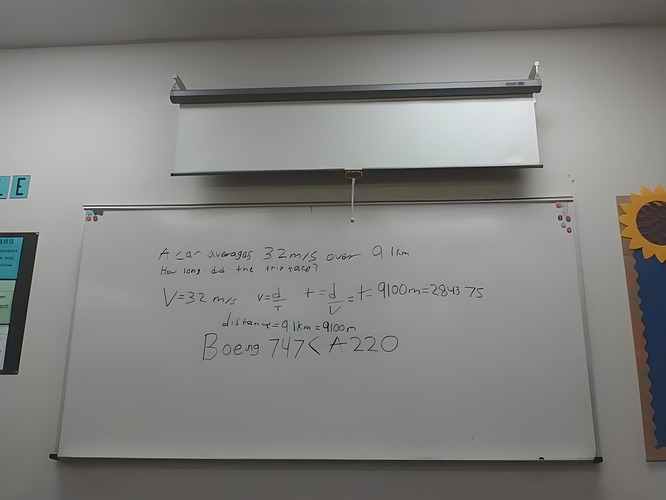 LE
A car averages 32m/s over 9.1km
How long did the trip take?
V=32 m/s v=d/T t=d/V=t=9100m=284.375
distance=9.1km=9100m
Boeng 747< A220